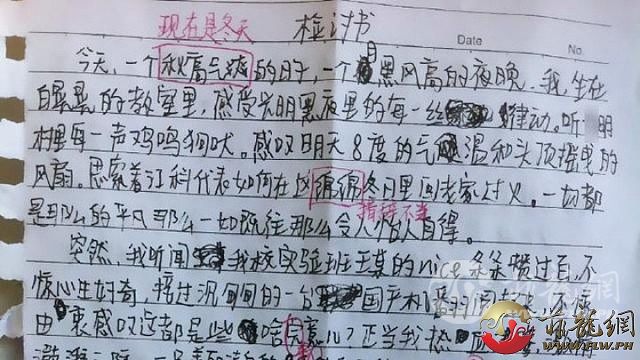 现在是冬天
检讨书
Date
No.
今天,一个秋高气爽的日子,一个月黑风高的夜晚。我坐在
白晃晃的教室里,感受长明黑夜里的每一丝律动。听 明
村里每一声鸡鸣狗吠。感叹明天8度的气温和头顶摇曳的
风扇。思索着江科代表如何在这绵绵冬日里回老家过火。一切都
措辞不当
是那么的平凡那么一如既往那么令人怡然自得。
突然,我听闻 我校实验班王某的 条条攒过百,不
惊心生好奇,接过沉甸甸的一台 国产机
由衷感叹这都是些啥 正当我
飛龍網
WWW.FLW.PH